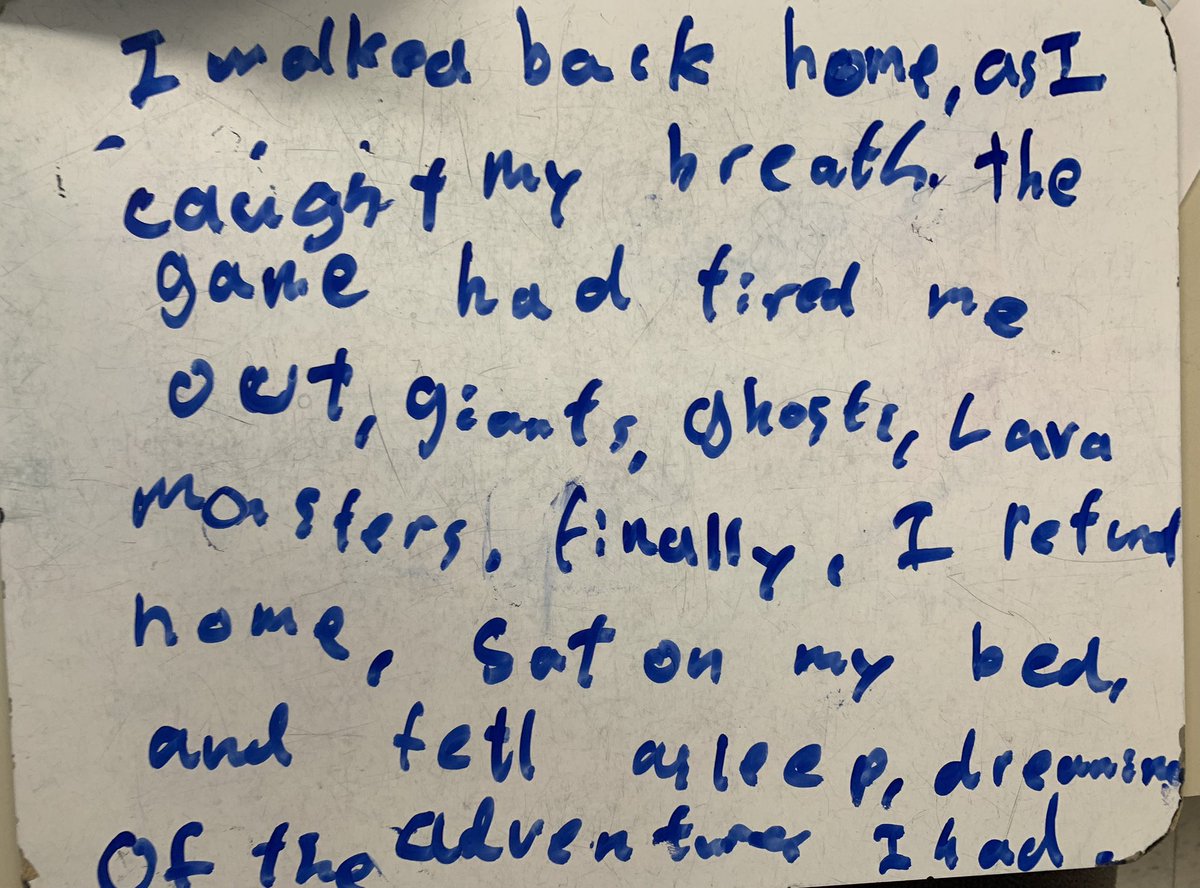 I walked back home, as I
caught my breath. the
game had tired me
out, giants, ghosts, Lava
monsters, finally, I returnd
home, sat on my bed,
and fell asleep, dreaming
Of the adventures I had.